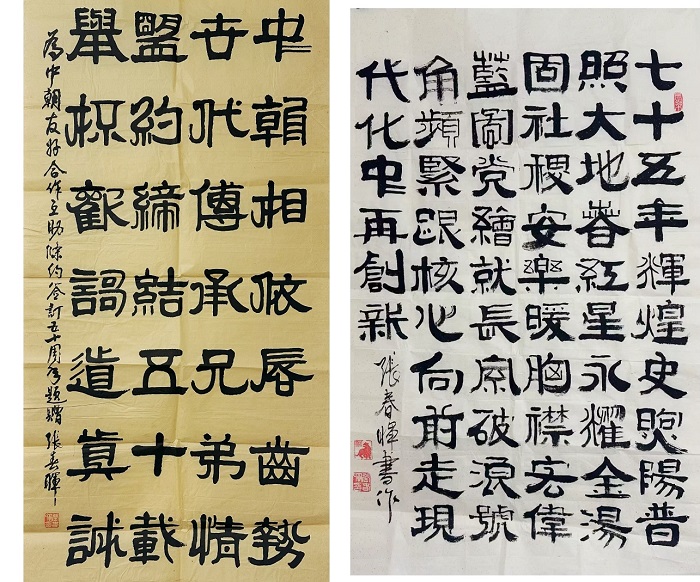 中朝相依唇齒勢
世代傳承兄弟情
盟約締結五十載
舉杯歡謌道真誠
為中朝友好合作互助條約簽訂五十周年題贈 張春暉
七十五年輝煌史煦陽普
照大地春紅星永耀金湯
固社稷安樂暖胸襟宏偉
藍圖党繪就長風破浪號
角頻緊跟核心向前走現
代化中再創新
張春暉書作